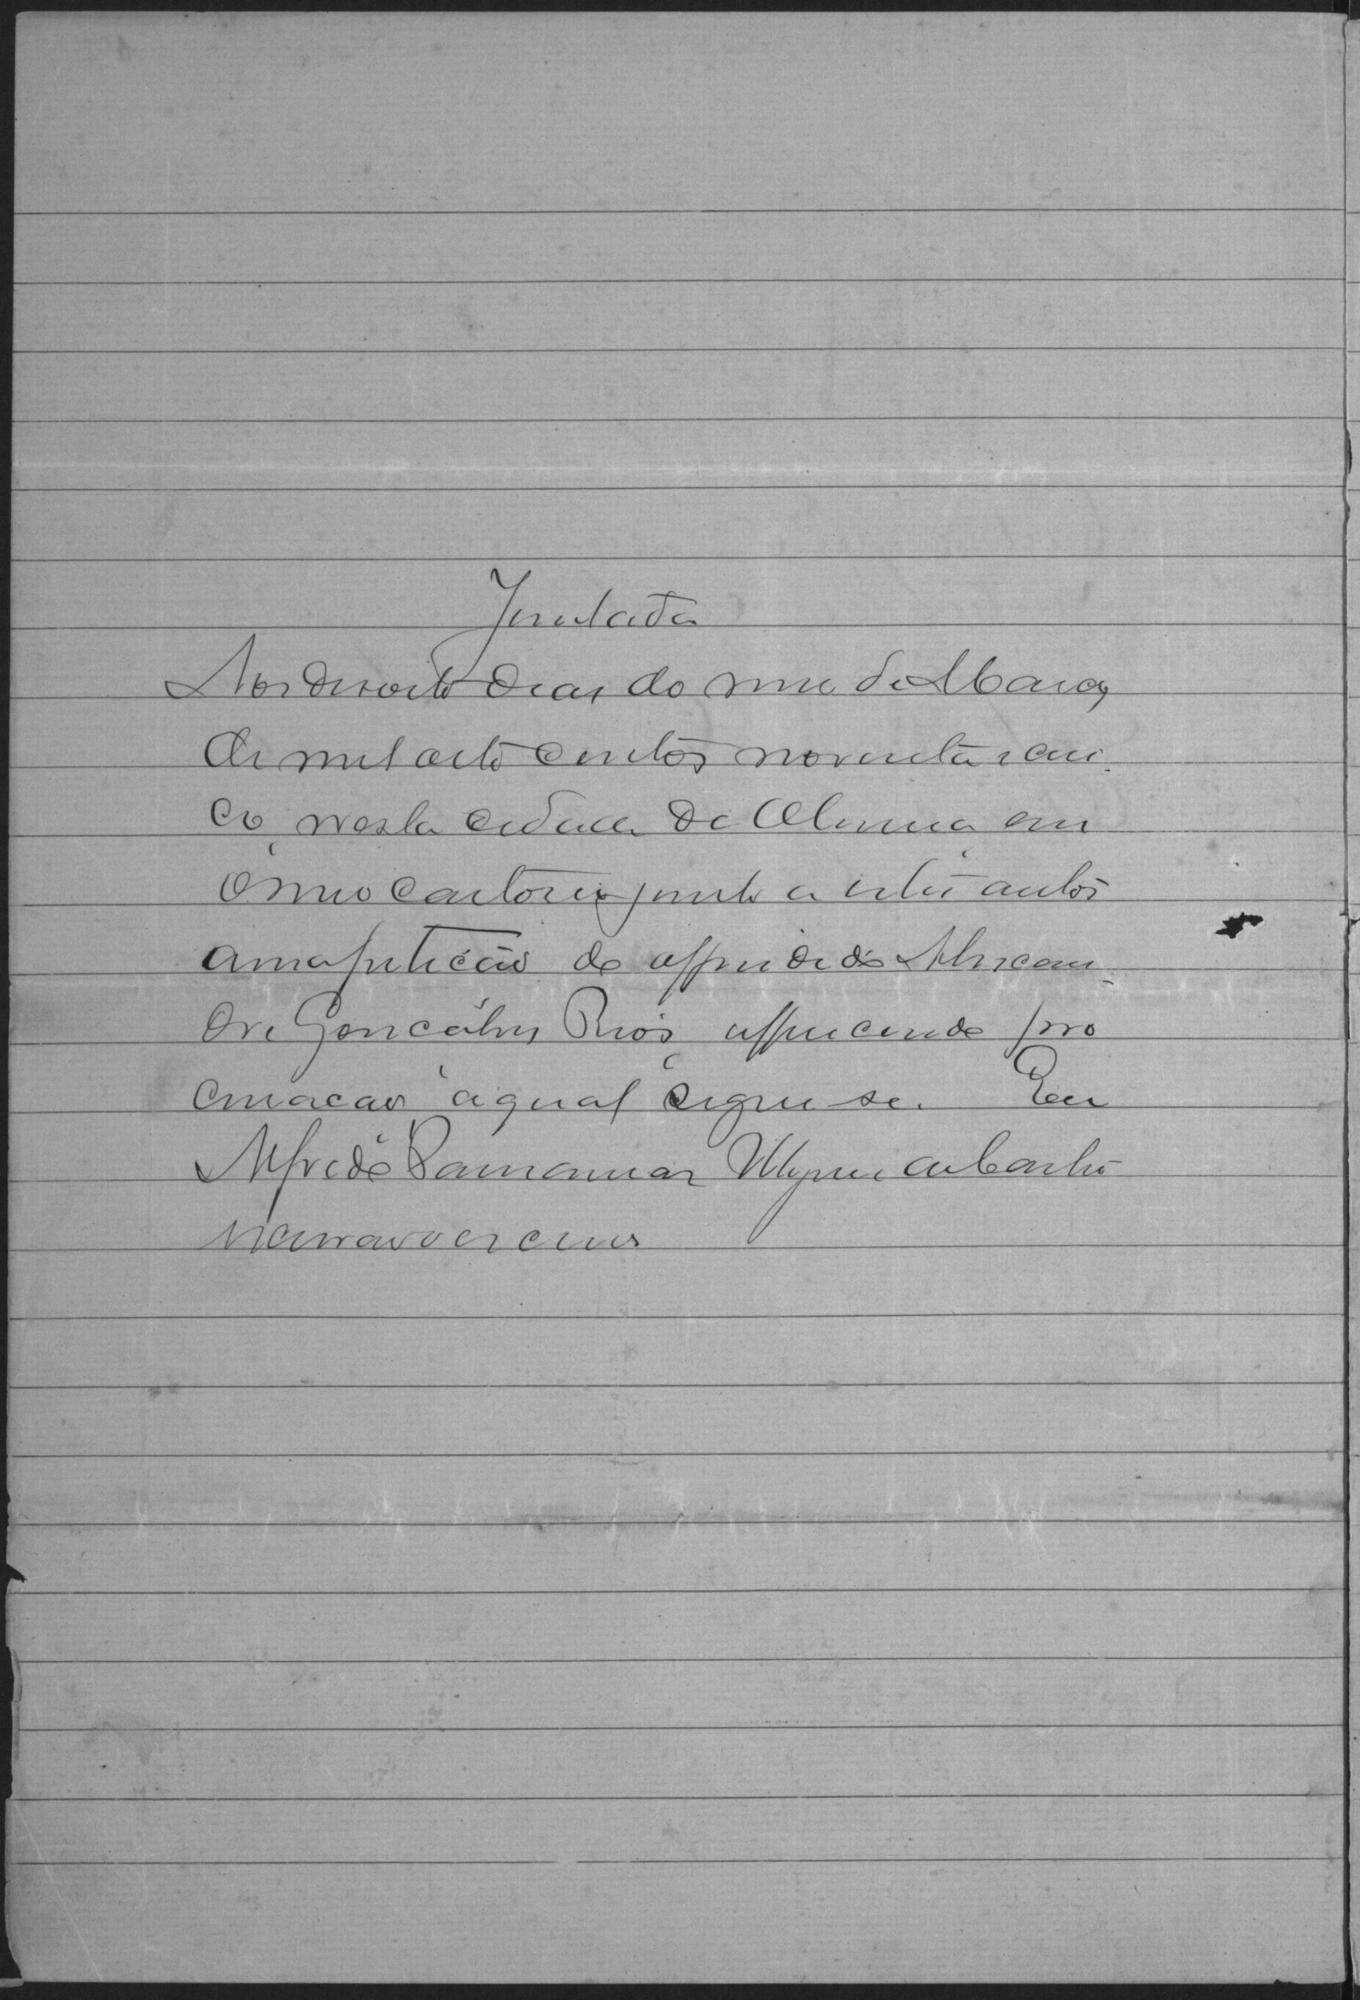 Juntada
Aos desoito dias do mez de Março
de mil oito centos noventa e cin
co, nesta cidade de Olinda em
o meo cartorio junto a estes autos
a uma petição do offendido Alexan
dre Gonçalves Rios offerecendo pro
curacão a qual segue-se. Eu
Alfredo
escrivão